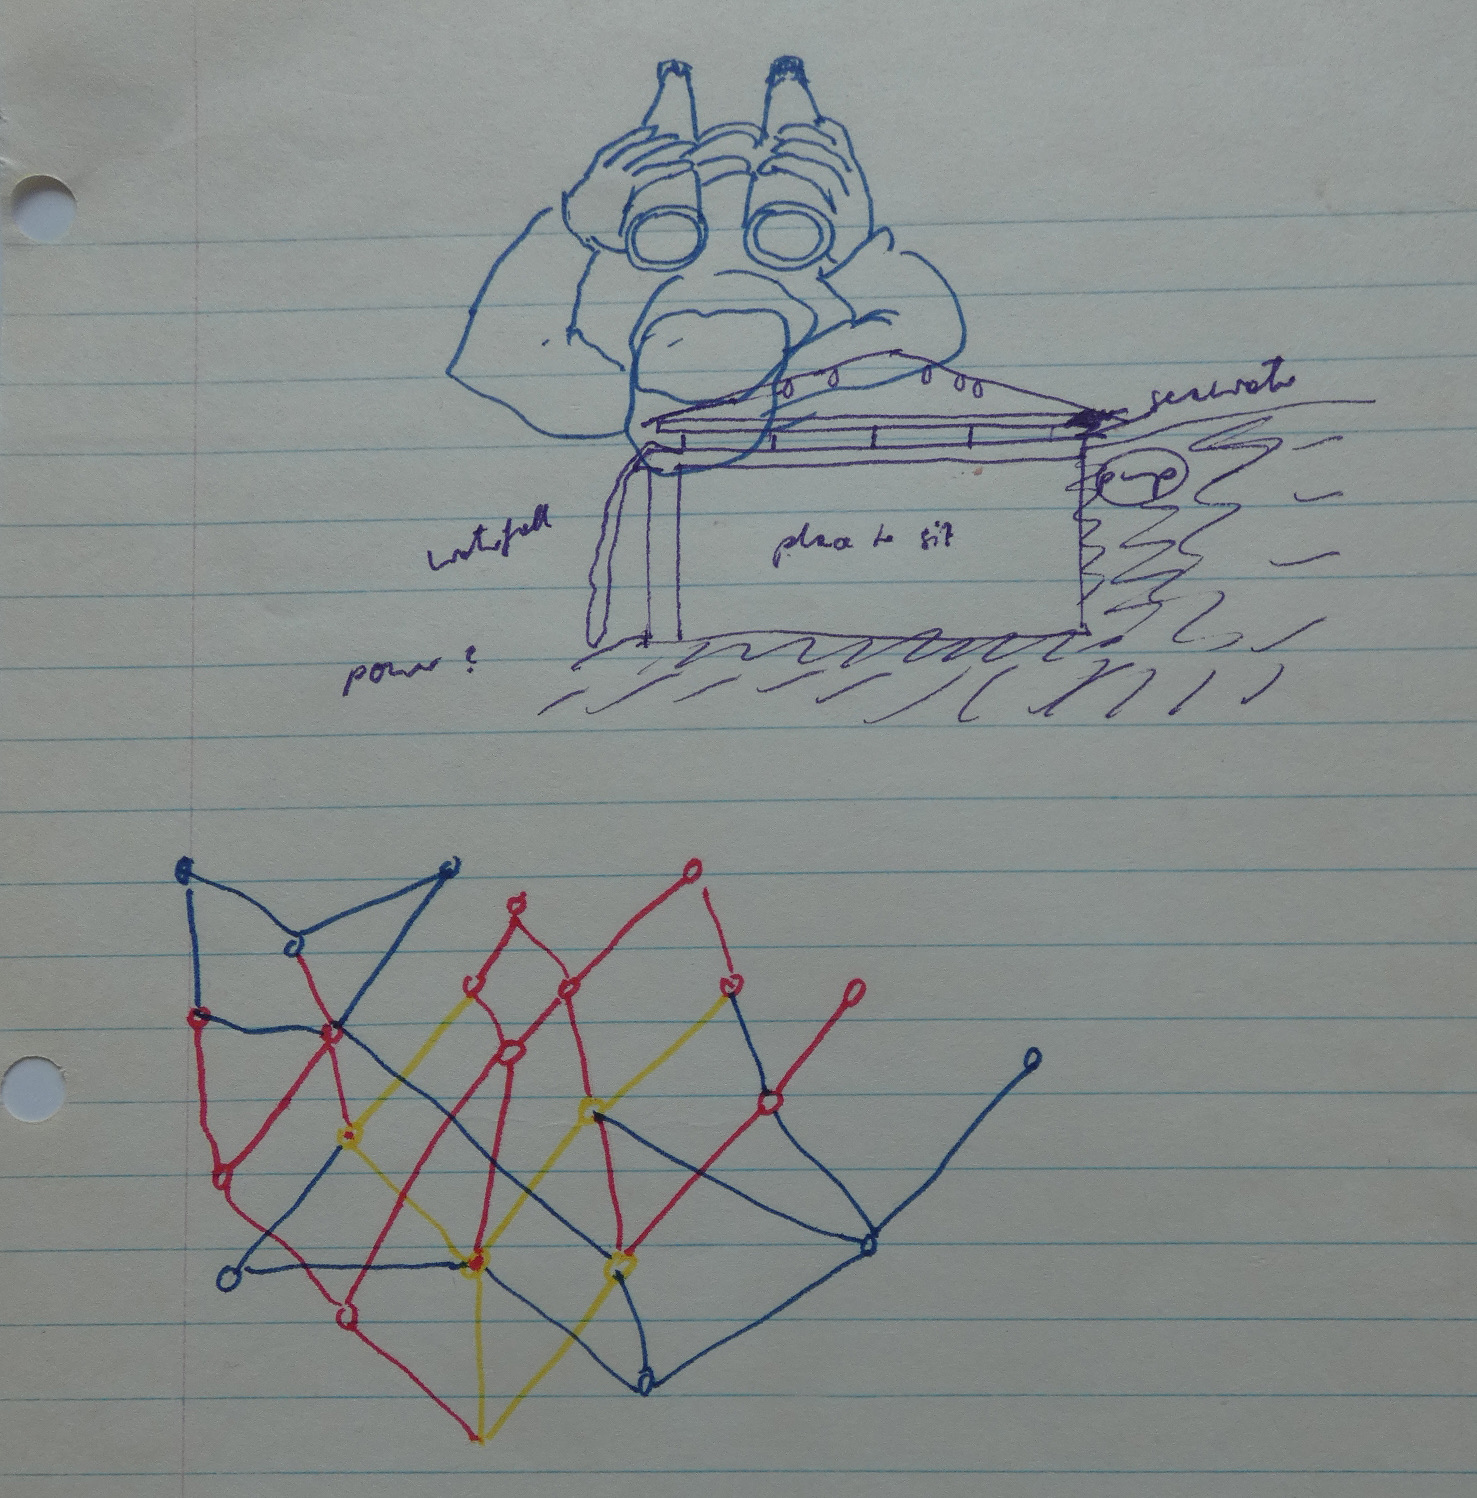 seawater
pump
waterfall
place to sit
power?